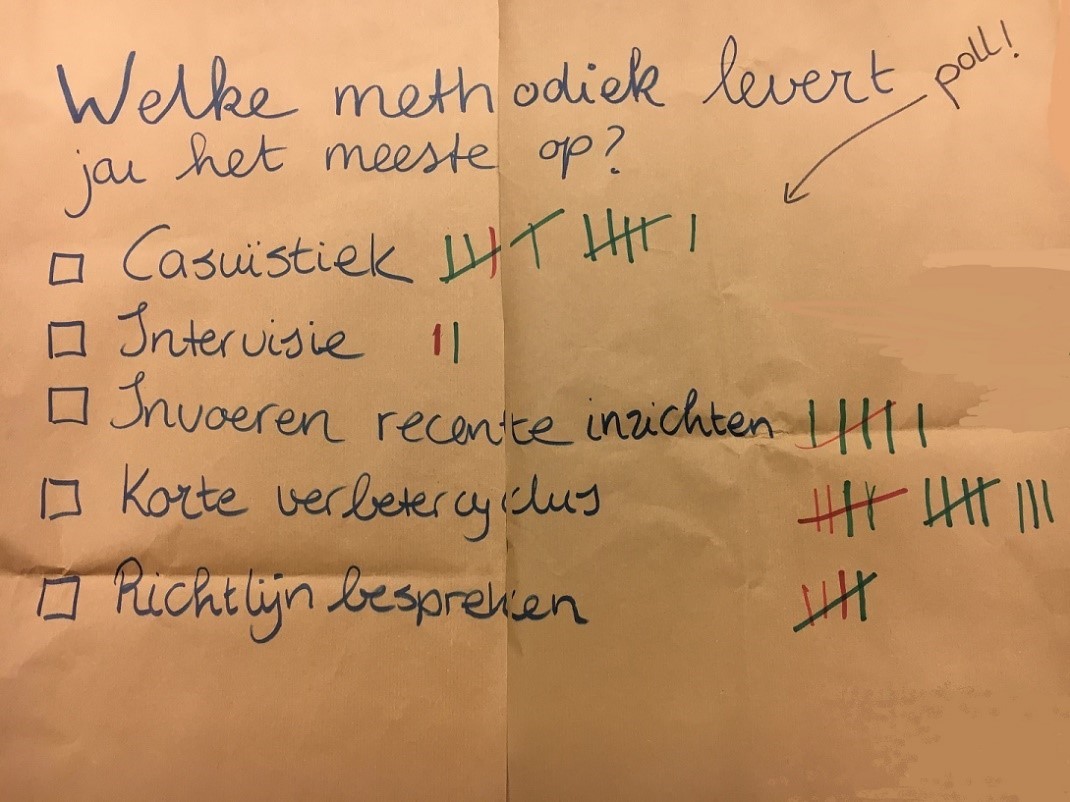 Welke methodiek levert
jou het meeste op?
poll!
Casuïstiek
Intervisie
Invoeren recente inzichten
Korte verbetercyclus
Richtlijn bespreken